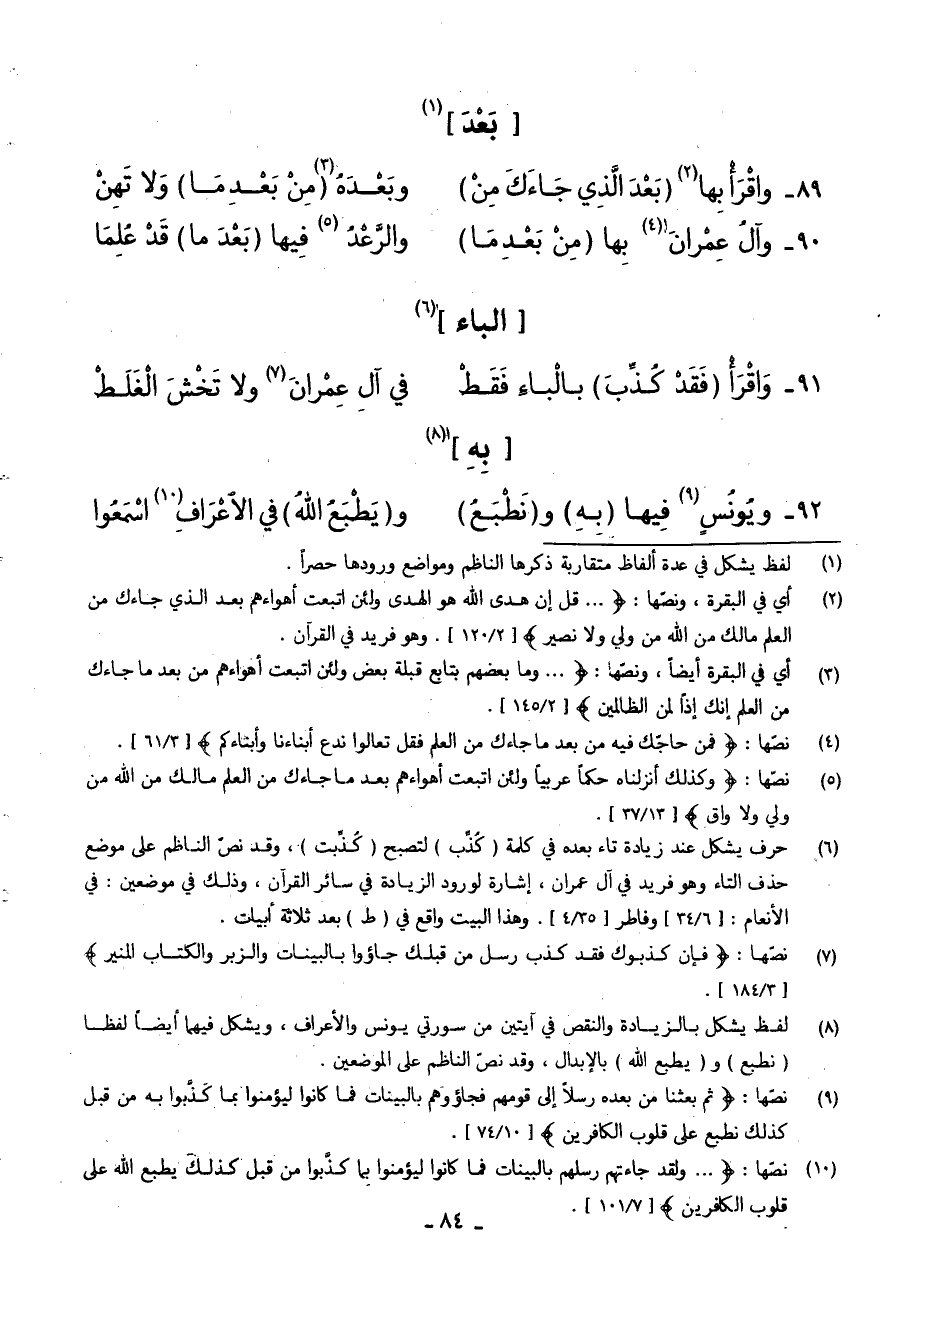 [ بَعْدَ ](١)
٨٩ـ واقْرَأْ بها(٢) (بَعْدَ الَّذِي جَاءَكَ مِنْ) وبَعْـدَهُ(٣) (مِنْ بَعْـدِ مَـا) وَلا تَهِنْ
٩٠ـ وآلُ عِمْرانَ(٤) بِها (مِنْ بَعْـدِ مَـا) والرَّعْدُ(٥) فِيها (بَعْدَ ما) قَدْ عُلِمَا
[ الباء ](٦)
٩١ـ وَاقْرَأْ (فَقَدْ كُذِّبَ) بـالْبـاءِ فَقَـطْ في آلِ عِمْرانَ(٧) ولا تَخْشَ الْغَلَـطْ
[ بِهِ ](٨)
٩٢ـ ويُونُسٍ(٩) فِيهـا (بِـهِ) و(نَطْبَـعُ) و(يَطْبَعُ اللهُ) في الأعْرَافِ(١٠) اسْمَعُوا
(١) لفظ يشكل في عدة ألفاظ متقاربة ذكرها الناظم ومواضع ورودها حصراً .
(٢) أي في البقرة ، ونصّها : ﴿ ... قل إن هدى الله هو الهدى ولئن اتبعت أهواءهم بعد الـذي جـاءك من
العلم مالك من الله من ولي ولا نصير ﴾ [ ١٢٠/٢ ] . وهو فريد في القرآن .
(٣) أي في البقرة أيضاً ، ونصّها : ﴿ ... وما بعضهم بتابع قبلة بعض ولئن اتبعت أهواءهم من بعد ما جاءك
من العلم إنك إذاً لمن الظالمين ﴾ [ ١٤٥/٢ ] .
(٤) نصّها : ﴿ فمن حاجّك فيه من بعد ماجاءك من العلم فقل تعالوا ندع أبناءنا وأبناءكم ﴾ [ ٦١/٣ ] .
(٥) نصّها : ﴿ وكذلك أنزلناه حكماً عربياً ولئن اتبعت أهواءهم بعد مـاجـاءك من العلم مـالـك من الله من
ولي ولا واق ﴾ [ ٣٧/١٣ ] .
(٦) حرف يشكل عند زيادة تاء بعده في كلمة ( كُذِّب ) لتصبح ( كُذِّبت ) ، وقـد نصّ النـاظم على موضع
حذف التاء وهو فريد في آل عمران ، إشارة لورود الزيـادة في سائر القرآن ، وذلـك في موضعين : في
الأنعام : [ ٣٤/٦ ] وفاطر [ ٤/٣٥ ] . وهذا البيت واقع في ( ط ) بعد ثلاثة أبيات .
(٧) نصّهـا : ﴿ فـإن كـذبوك فقـد كذب رسل من قبلـك جـاؤوا بـالبينـات والـزبر والكتـاب المنير ﴾
[ ١٨٤/٣ ] .
(٨) لفـظ يشكل بـالـزيـادة والنقص في آيتين من سورتي يـونس والأعراف ، ويشكل فيها أيضـاً لفظـا
( نطبع ) و ( يطبع الله ) بالإبدال ، وقد نصّ الناظم على الموضعين .
(٩) نصّها : ﴿ ثم بعثنا من بعده رسلاً إلى قومهم فجاؤوهم بالبينات فـا كانوا ليؤمنوا بما كَـذَّبوا بـه من قبل
كذلك نطبع على قلوب الكافرين ﴾ [ ٧٤/١٠ ] .
(١٠) نصّها : ﴿ ... ولقد جاءتهم رسلهم بالبينات فـا كانوا ليؤمنوا بما كذَّبوا من قبل كـذلـك يطبع الله على
قلوب الكافرين ﴾ [ ١٠١/٧ ] .
ـ ٨٤ ـ